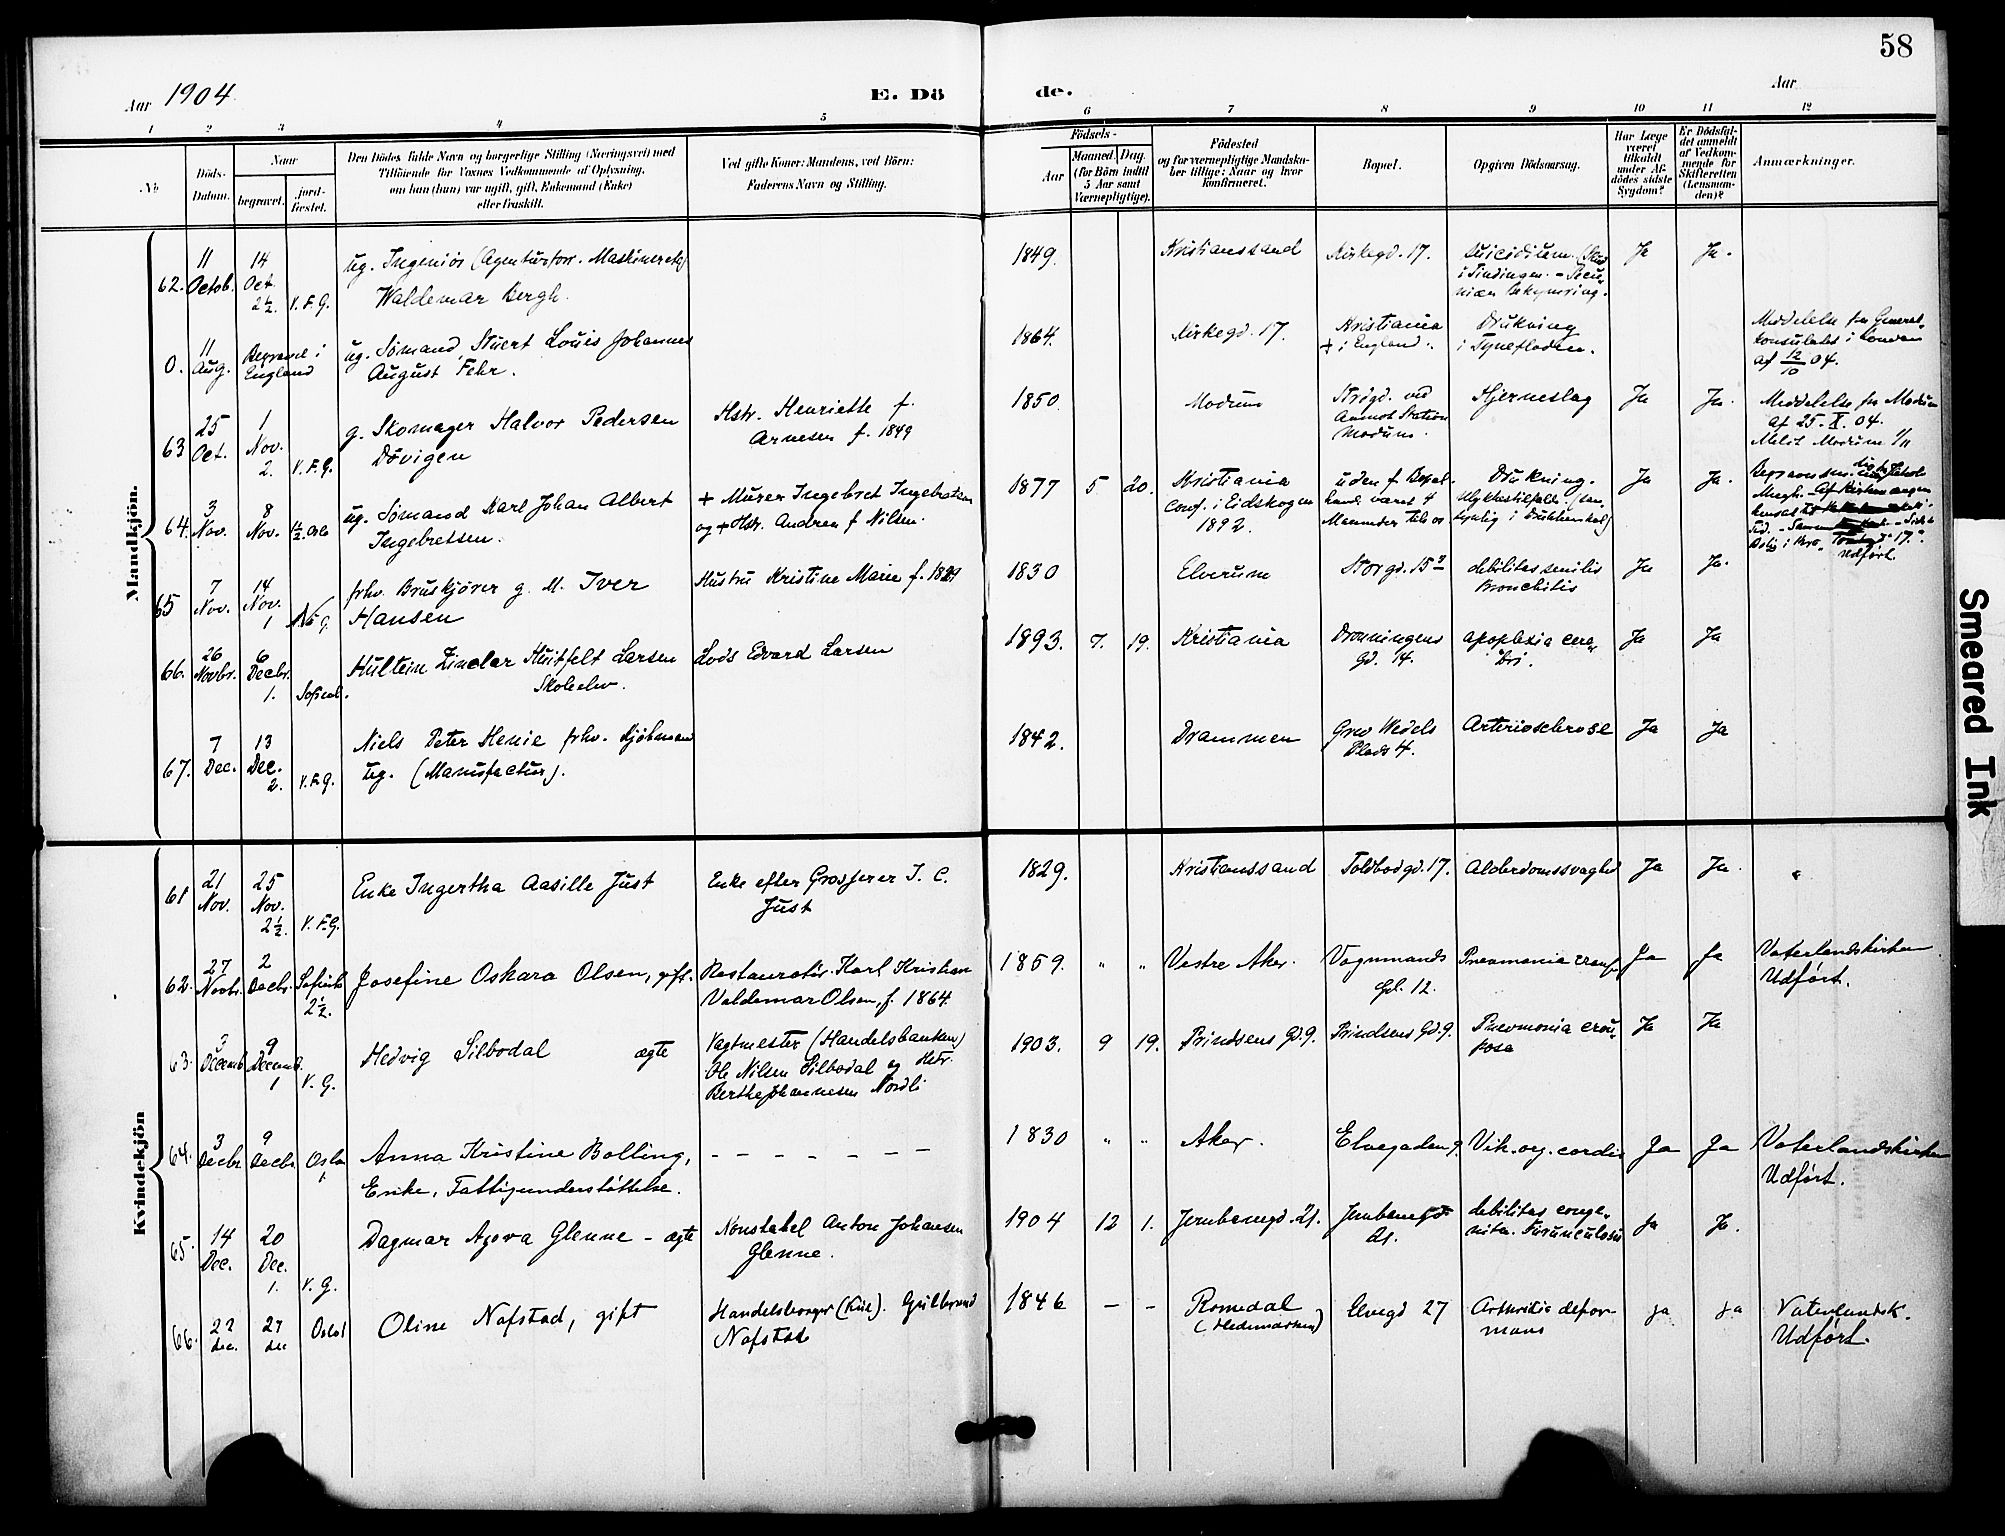 58
Aar 1904
E. Dö
de.
Aar
1
2
3
4
5
6
7
8
9
10
11
12
№
Döds-
Datum.
Naar
begravet.
jord-
fæstet.
Den Dödes fulde Navn og borgerlige Stilling (Næringsvei) med
Tilföiende for Voxnes Vedkommende af Oplysning,
om han (hun) var ugift, gift, Enkemand (Enke)
eller fraskilt.
Ved gifte Koner: Mandens, ved Börn:
Faderens Navn og Stilling.
Födsels-
Aar
Maaned. Dag.
(for Börn indtil
5 Aar samt
Værnepligtige).
Födested
og for værnepligtige Mandsku-
ber tillige: Naar og hvor
konfirmeret.
Bopæl.
Opgiven Dödsaarsag.
Har Læge
været
tilkaldt
under Af-
dödes sidste
Sygdom?
Er Dödsfal-
det anmeldt
af Vedkom-
mende for
Skifteretten
(Lensman-
den)?
Anmærkninger.
Mandkjön.
62.
11
Octob.
14
Oct.
2½.
V. F. G.
ug. Ingeniör (Agenturforr. Maskiner etc)
Waldemar Bergh.
1849.
Kristianssand
Kirkegd. 17.
Suicidium.
Ja
Ja.
0.
11
Aug.
Begravet i
England
ug. Sömand Stuert Louis Johannes
August Fehr.
1864.
Kirkegd. 17.
Kristiania
+ i England.
Drukning
i Tynefloden.
Meddelelse fra General-
konsulatet i London
af 12/10 04.
63
25
Oct.
1
Nov.
2.
V. F. G.
g. Skomager Halvor Pedersen
Dövigen
Hstr. Henriette f.
Arnesen f. 1849
1850
Modum
Strögd. ved
Aamot Station
Modum.
Hjerneslag
Ja
Ja.
Meddelelse fra Modum
af 25. X. 04.
Meldt Modum 1/11
64.
3
Nov.
8
Nov.
½ Oslo
ug. Sömand Karl Johan Albert
Ingebretsen.
+ Murer Ingebret Ingebretsen
og + Hstr. Andrea f Nilsen.
1877 5 20.
Kristiania
conf. i Eidskogen
1892.
uden f Bopæl
havde været 4
Maaneder tils os
Drukning.
Ulykkestilfælde.
Ja
Ja.
Udfört.
65
7
Nov.
14
Nov.
1
frhv. Bruskjörer g. M. Iver
Hansen
Hustru Kristine Marie f. 1829
1830
Elverum
Storgd. 15
debilitas senilis
Bronchitis
Ja
Ja.
66.
26
Novbr.
6
Decbr.
1.
Sofienb.
Hultein Zinclar Huitfelt Larsen
Skoleelev.
Lods Edvard Larsen
1893. 7. 19.
Kristiania
Dronningens
Gd. 14.
apoplexia cere-
bri.
Ja
Ja
67.
7
Dec.
13
Dec.
2.
V. F. G.
Niels Peter Henie frhv. Kjöbmand
ug. (Manufactur).
1842.
Drammen
Grev Wedels
Plads 4.
Arteriosclerose
Ja
Ja
Kvindekjön
61
21
Nov.
25
Nov.
2½.
V. F. G.
Enke Ingertha Aasille Just
Enke efter Grosserer I. C.
Just
1829.
Kristianssand
Toldbodgd. 17.
Alderdomssvaghed
Ja
Ja.
62.
27
Novbr.
2
Decbr.
2½.
Josefine Oskara Olsen, gift.
Restauratör Karl Kristian
Valdemar Olsen, f. 1864.
1859. " "
Vestre Aker.
Vognmands
Gd. 12.
Pneumonia croup.
Ja
Ja
Vaterlandskirken
Udfört.
63.
3
Decemb.
9
Decemb.
1
V. G.
Hedvig Silbodal ægte
Vagtmester (Handelsbanken)
Ole Nilsen Silbodal og Hstr.
Berthe Johannesen Nordli
1903. 9 19.
Prindsens Gd. 9.
Prindsens Gd. 9.
Pnevmonia crou-
posa
Ja
Ja
64.
3
Decbr
9
Decbr.
Oslo
1
Anna Kristine Bolling,
Enke, Fattigunderstöttelse.
– – – – – – –
1830 " "
Aker.
Elvegaden 9.
Vit. org. cordis
Ja
Ja
Vaterlandskirken
Udfört.
65.
14
Dec.
20
Dec.
1.
V. G.
Dagmar Agova Glenne – ægte
Konstabel Anton Johansen
Glenne.
1904 12 1.
Jernbanegd. 21.
Jernbanegd.
21.
debilitas conge-
nita. Furunculosis
Ja
Ja.
66.
22
dec.
27
dec
Oslo 1
Oline Nafstad, gift
Handelsborger (Kul). Gulbrand
Nafstad
1846 – –
Romedal
(Hedemarken)
Elvegd 27
Arthritis defor-
mans
ja
ja
Vaterlandsk.
Udfört.
Smeared Ink